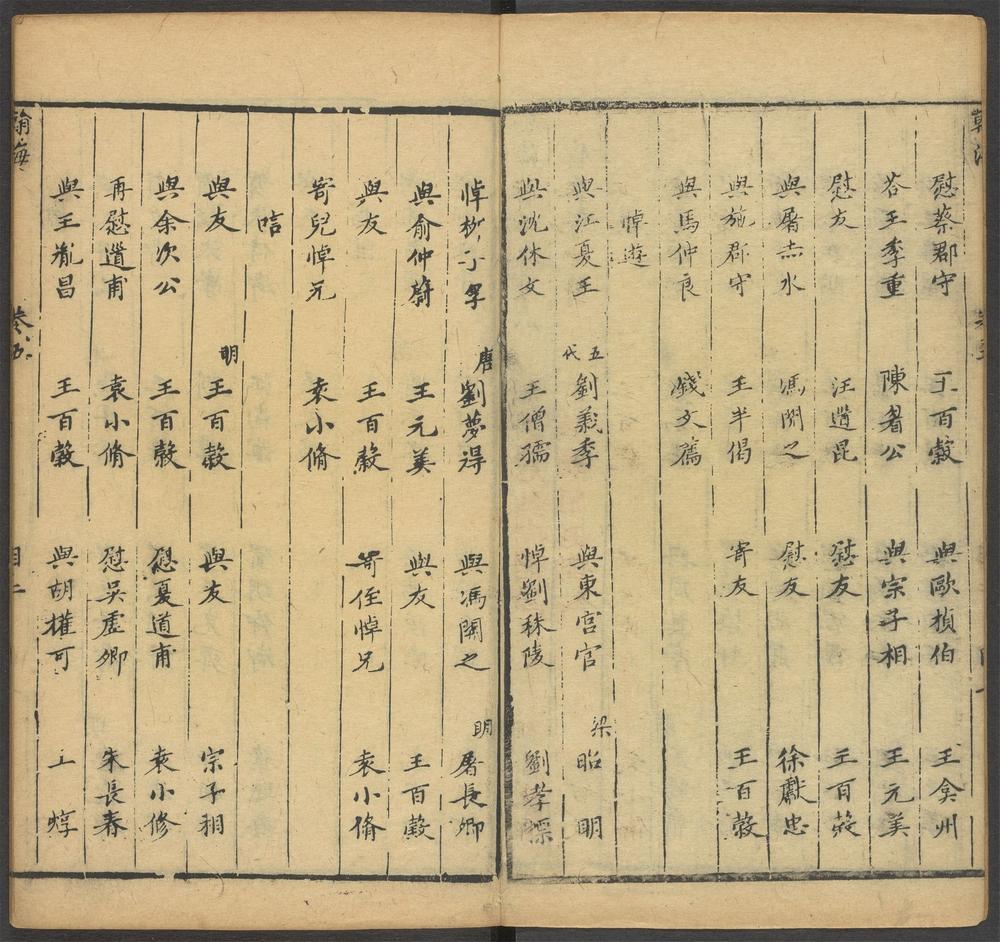 慰蔡郡守 王百穀 與歐楨伯 王弇州
荅王季重 陳眉公 與宗子相 王元美
慰友 汪道昆 慰友 王百穀
與屠赤水 馮開之 慰友 徐獻忠
與施郡守 王半偈 寄友 王百穀
與馬仲良 錢文薦
悼遊
與江夏王 五代 劉義季 與東宮官 梁 昭明
與沈休文 王僧孺 悼劉秣陵 劉孝標
悼柳子厚 唐 劉夢得 與馮開之 明 屠長卿
與俞仲蔚 王元美 與友 王百穀
與友 王百穀 寄侄悼兄 袁小脩
寄兒悼兄 袁小脩
唁
與友 明 王百穀 與友 宗子相
與余次公 王百穀 慰夏道甫 袁小修
再慰道甫 袁小脩 慰吳虛卿 朱長春
與王胤昌 王百穀 與胡權可 王焞
翰海 卷五 目二